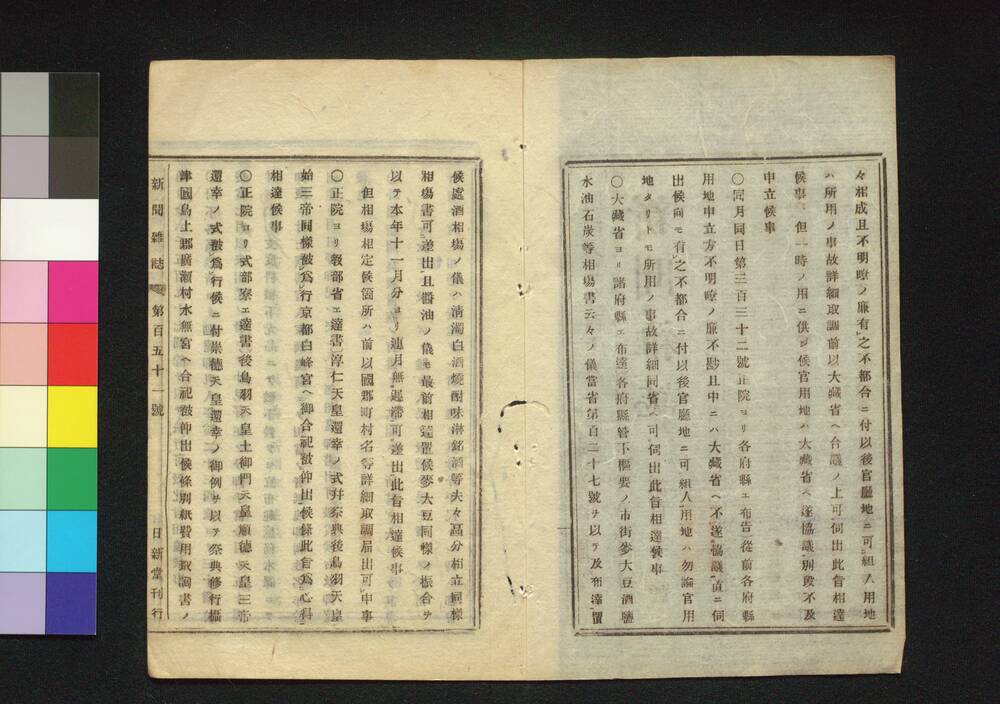 々相成且不明瞭ノ廉有㆑之不都合ニ付以後官廳地ニ可㆓組入㆒用地
ハ所用ノ事故詳細取調前以大藏省ヘ合議ノ上可㆓伺出㆒此旨相達
候事 但一時ノ用ニ供シ候官用地ハ大藏省ヘ遂㆓協議㆒別段不㆑及㆓
申立㆒候事
〇同月同日第三百三十二號正院ヨリ各府縣エ布告從前各府縣
用地申立方不明瞭ノ廉不㆑尠且中ニハ大藏省ヘ不㆑遂㆓協議㆒直ニ伺
出候向モ有㆑之不都合ニ付以後官廳地ニ可㆓組入㆒用地ハ勿論官用
地タリトモ所用ノ事故詳細同省ヘ可㆓伺出㆒此旨相達候事
〇大藏省ヨリ諸府縣エ布達各府縣管下樞要ノ市街麥大豆酒鹽
水油石炭等相場書云々ノ儀當省第百二十七號ヲ以テ及㆓布達㆒置
候處酒相場ノ儀ハ清濁白酒燒酎味淋銘酒等夫々區分相立同樣
相場書可㆓差出㆒且醤油ノ儀モ最前相達置候麥大豆同樣ノ振合ヲ
以テ本年十一月分ヨリ連月無㆓遲滯㆒可㆓差出㆒此旨相達候事
但相場相定候箇所ハ前以國郡町村名等詳細取調屆出可㆑申事
〇正院ヨリ敎部省エ達書淳仁天皇還幸ノ式幷祭典後鳥羽天皇
始三帝同樣被㆑爲㆑行京都白峰宮ヘ御合祀被㆓仰出㆒候條此旨爲㆓心得㆒
相達候事
〇正院ヨリ式部寮エ達書後鳥羽天皇土御門天皇順德天皇三帝
還幸ノ式被㆑爲㆑行候ニ付崇德天皇還幸ノ御例ヲ以テ祭典修行攝
津國島上郡廣瀨村水無宮ヘ合祀被㆓仰出㆒候條別紙費用取調書ノ
新聞雜誌 第百五十一號 日新堂刊行